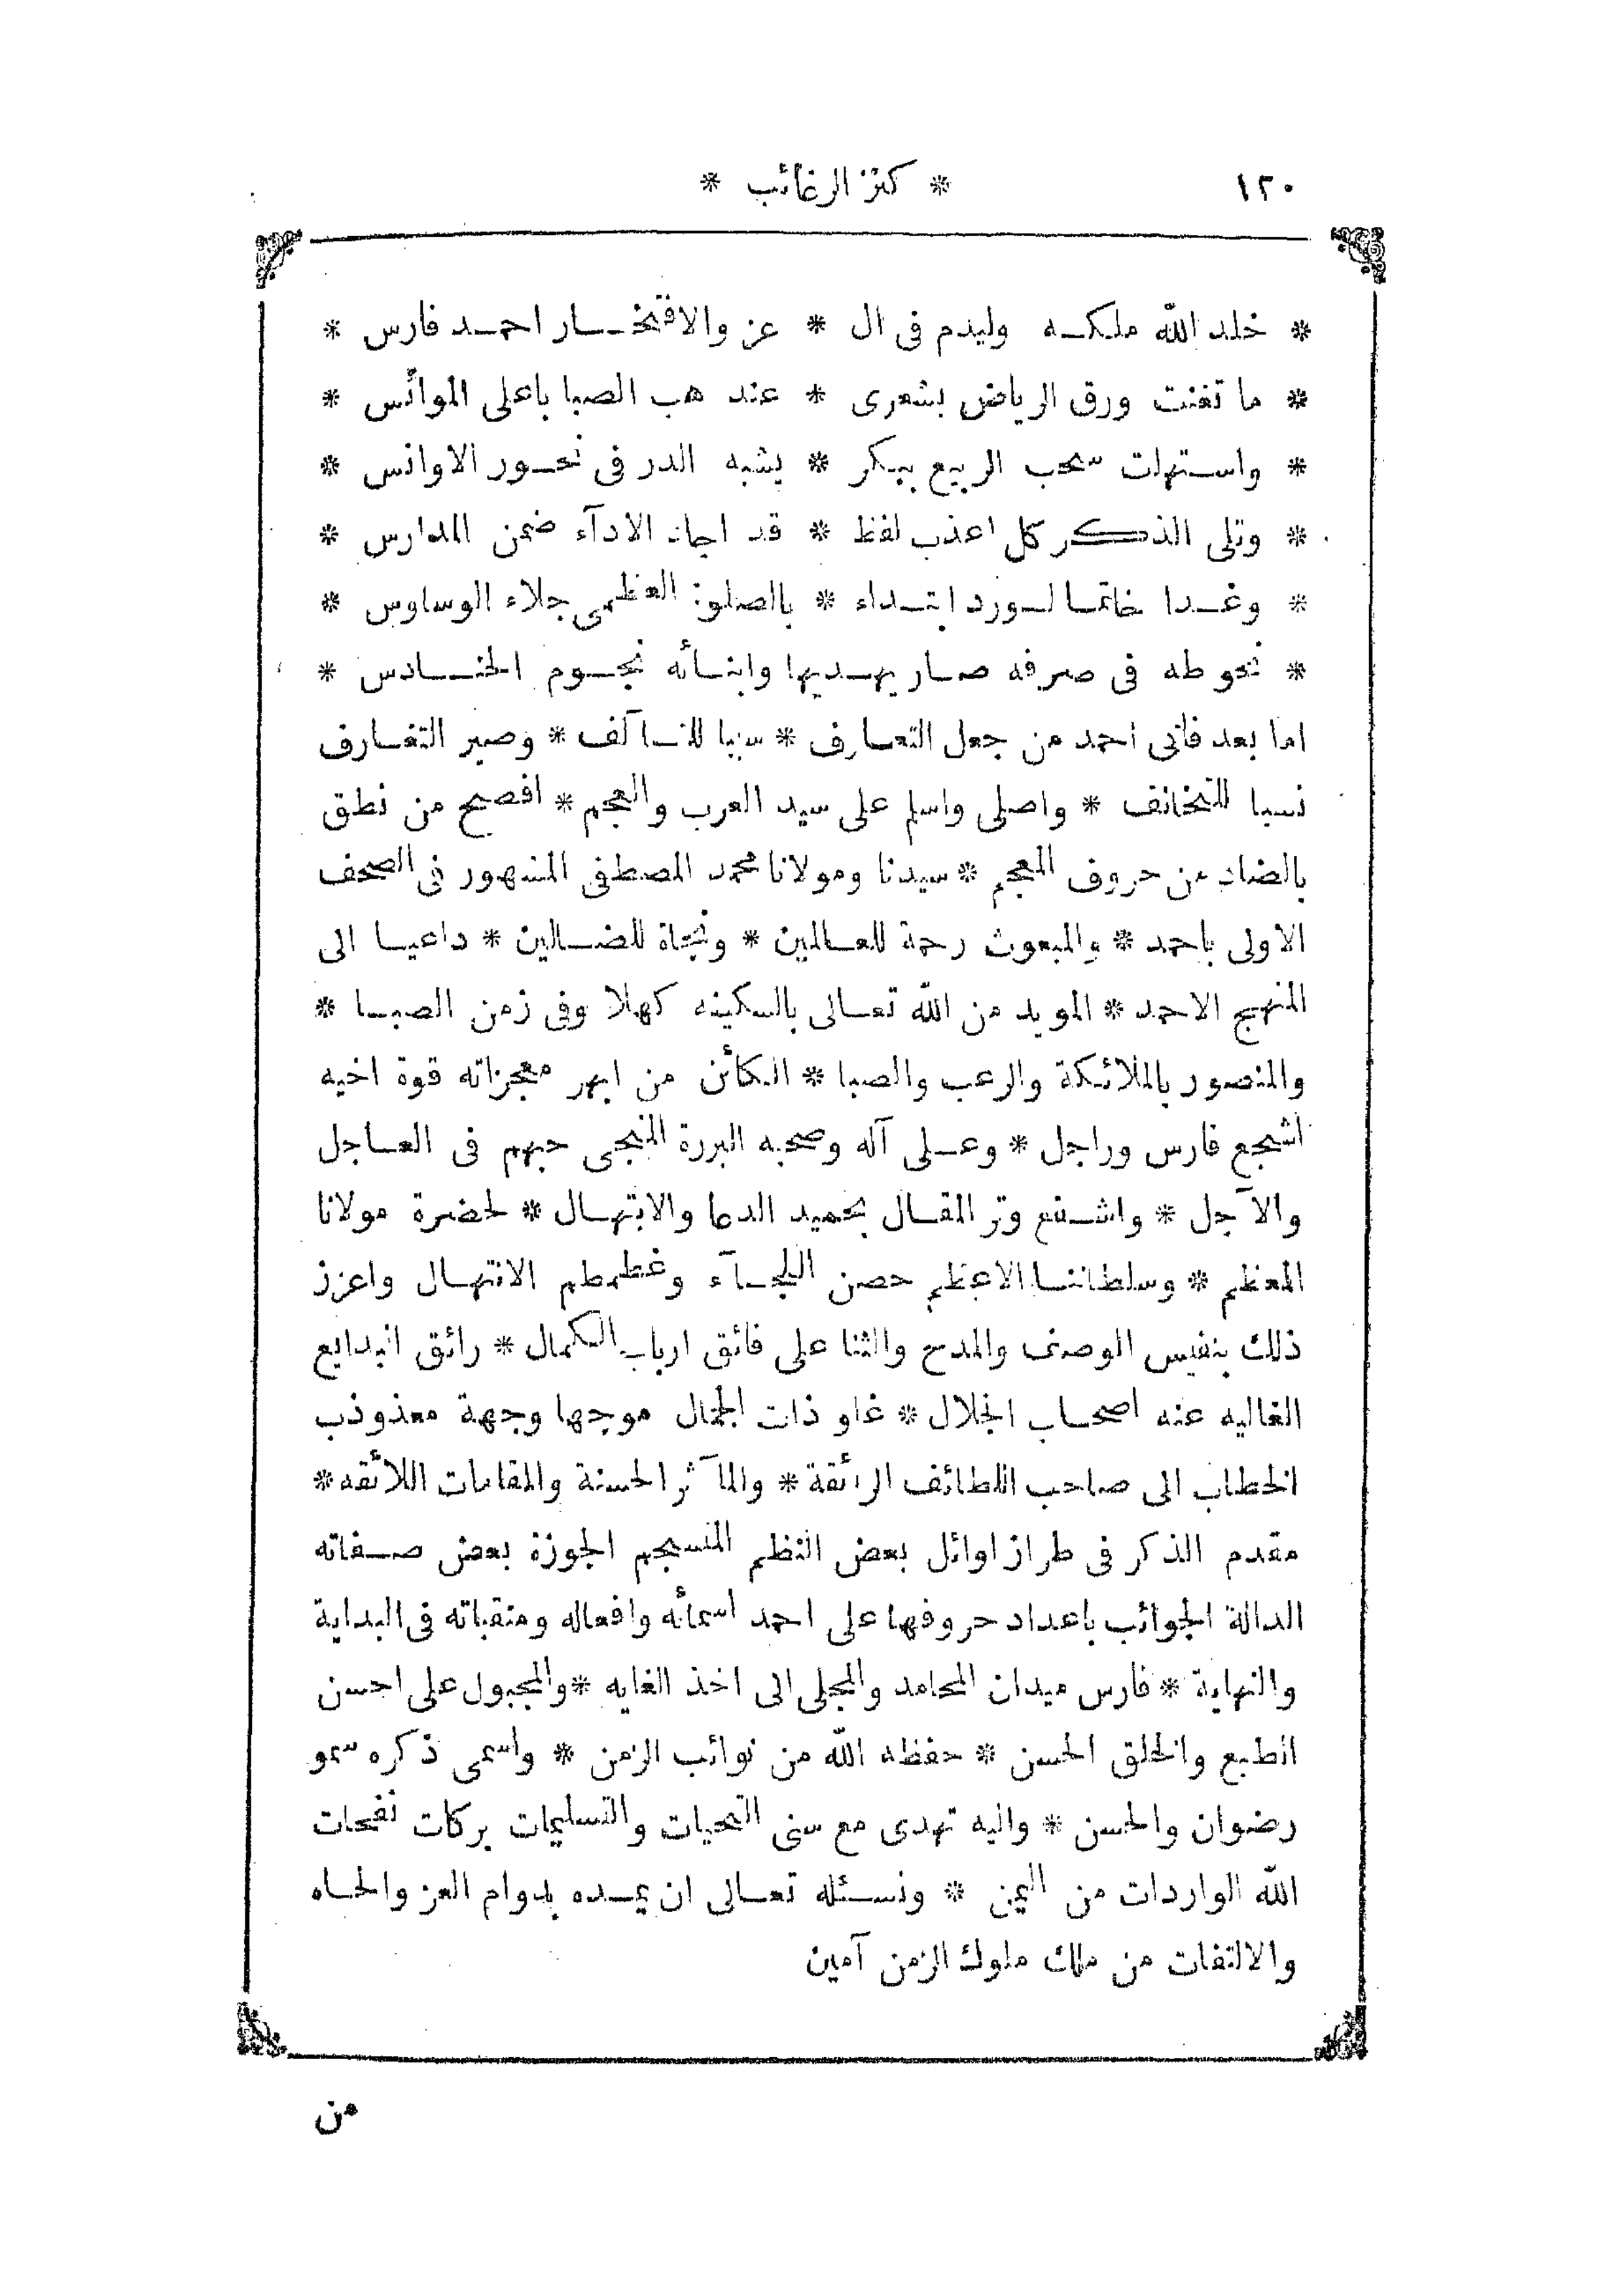 ١٢٠ * كنز الرغائب *
* خلد الله ملكه وليدم فى ال * عز والافتخار احمد فارس *
* ما تغنت ورق الرياض بشعرى * عند هب الصبا باعلى الموائس *
* واستهلت سحب الربيع ببكر * يشبه الدر فى نحور الاوانس *
* وتلى الذكر كل اعذب لفظ * قد اجاد الادآء ضمن المدارس *
* وغدا خاتما لورد ابتداء * بالصلوة العظمى جلاء الوساوس *
* نحو طه فى صرفه صار يهديها وابنائه نجوم الحنادس *
اما بعد فأنى احمد من جعل التعارف * سببا للتآلف * وصير التغارف
نسبا للتخانف * واصلى واسلم على سيد العرب والعجم * افصح من نطق
بالضاد من حروف المعجم * سيدنا ومولانا محمد المصطفى المشهور فى الصحف
الاولى باحمد * والمبعوث رحمة للعالمين * ونجاة للضالين * داعيا الى
المنهج الاحمد * المويد من الله تعالى بالسكينه كهلا وفى زمن الصبا *
والمنصور بالملائكة والرعب والصبا * الكائن من ابهر معجزاته قوة اخيه
اشجع فارس وراجل * وعلى آله وصحبه البررة المنجى حبهم فى العاجل
والآجل * واشفع وتر المقال بحميد الدعا والابتهال * لحضرة مولانا
المعظم * وسلطاننا الاعظم حصن اللجآء وغطمطم الانتهال واعزز
ذلك بنفيس الوصف والمدح والثنا على فائق ارباب الكمال * رائق البدايع
الغاليه عنه اصحاب الجلال * غاو ذات الجمال موجها وجهة معذوذب
الخطاب الى صاحب اللطائف الرائقة * والمآثر الحسنة والمقامات اللائقه *
مقدم الذكر فى طراز اوائل بعض النظم المنسجم الجوزة بعض صفاته
الدالة الجوائب باعداد حروفها على احمد اسمائه وافعاله ومنقباته فى البداية
والنهاية * فارس ميدان المحامد والمجلى الى اخذ الغايه * والمجبول على احسن
الطبع والخلق الحسن * حفظه الله من نوائب الزمن * واسمى ذكره سمو
رضوان والحسن * واليه تهدى مع سنى التحيات والتسليمات بركات نفحات
الله الواردات من اليمن * ونسئله تعالى ان يمده بدوام العز والجاه
والالتفات من ملك ملوك الزمن آمين
من